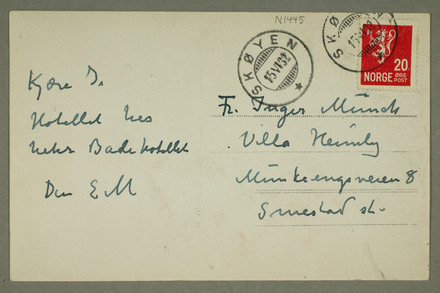 N1445
SKØYEN
15 VI 32
SKØ
20
NORGE ØRE
POST
Kjære I.
Hotellet
Badehotellet
Din E M
Fr. Inger Munch
Villa Heimly
Munkeengsveien 8
Smestad st.